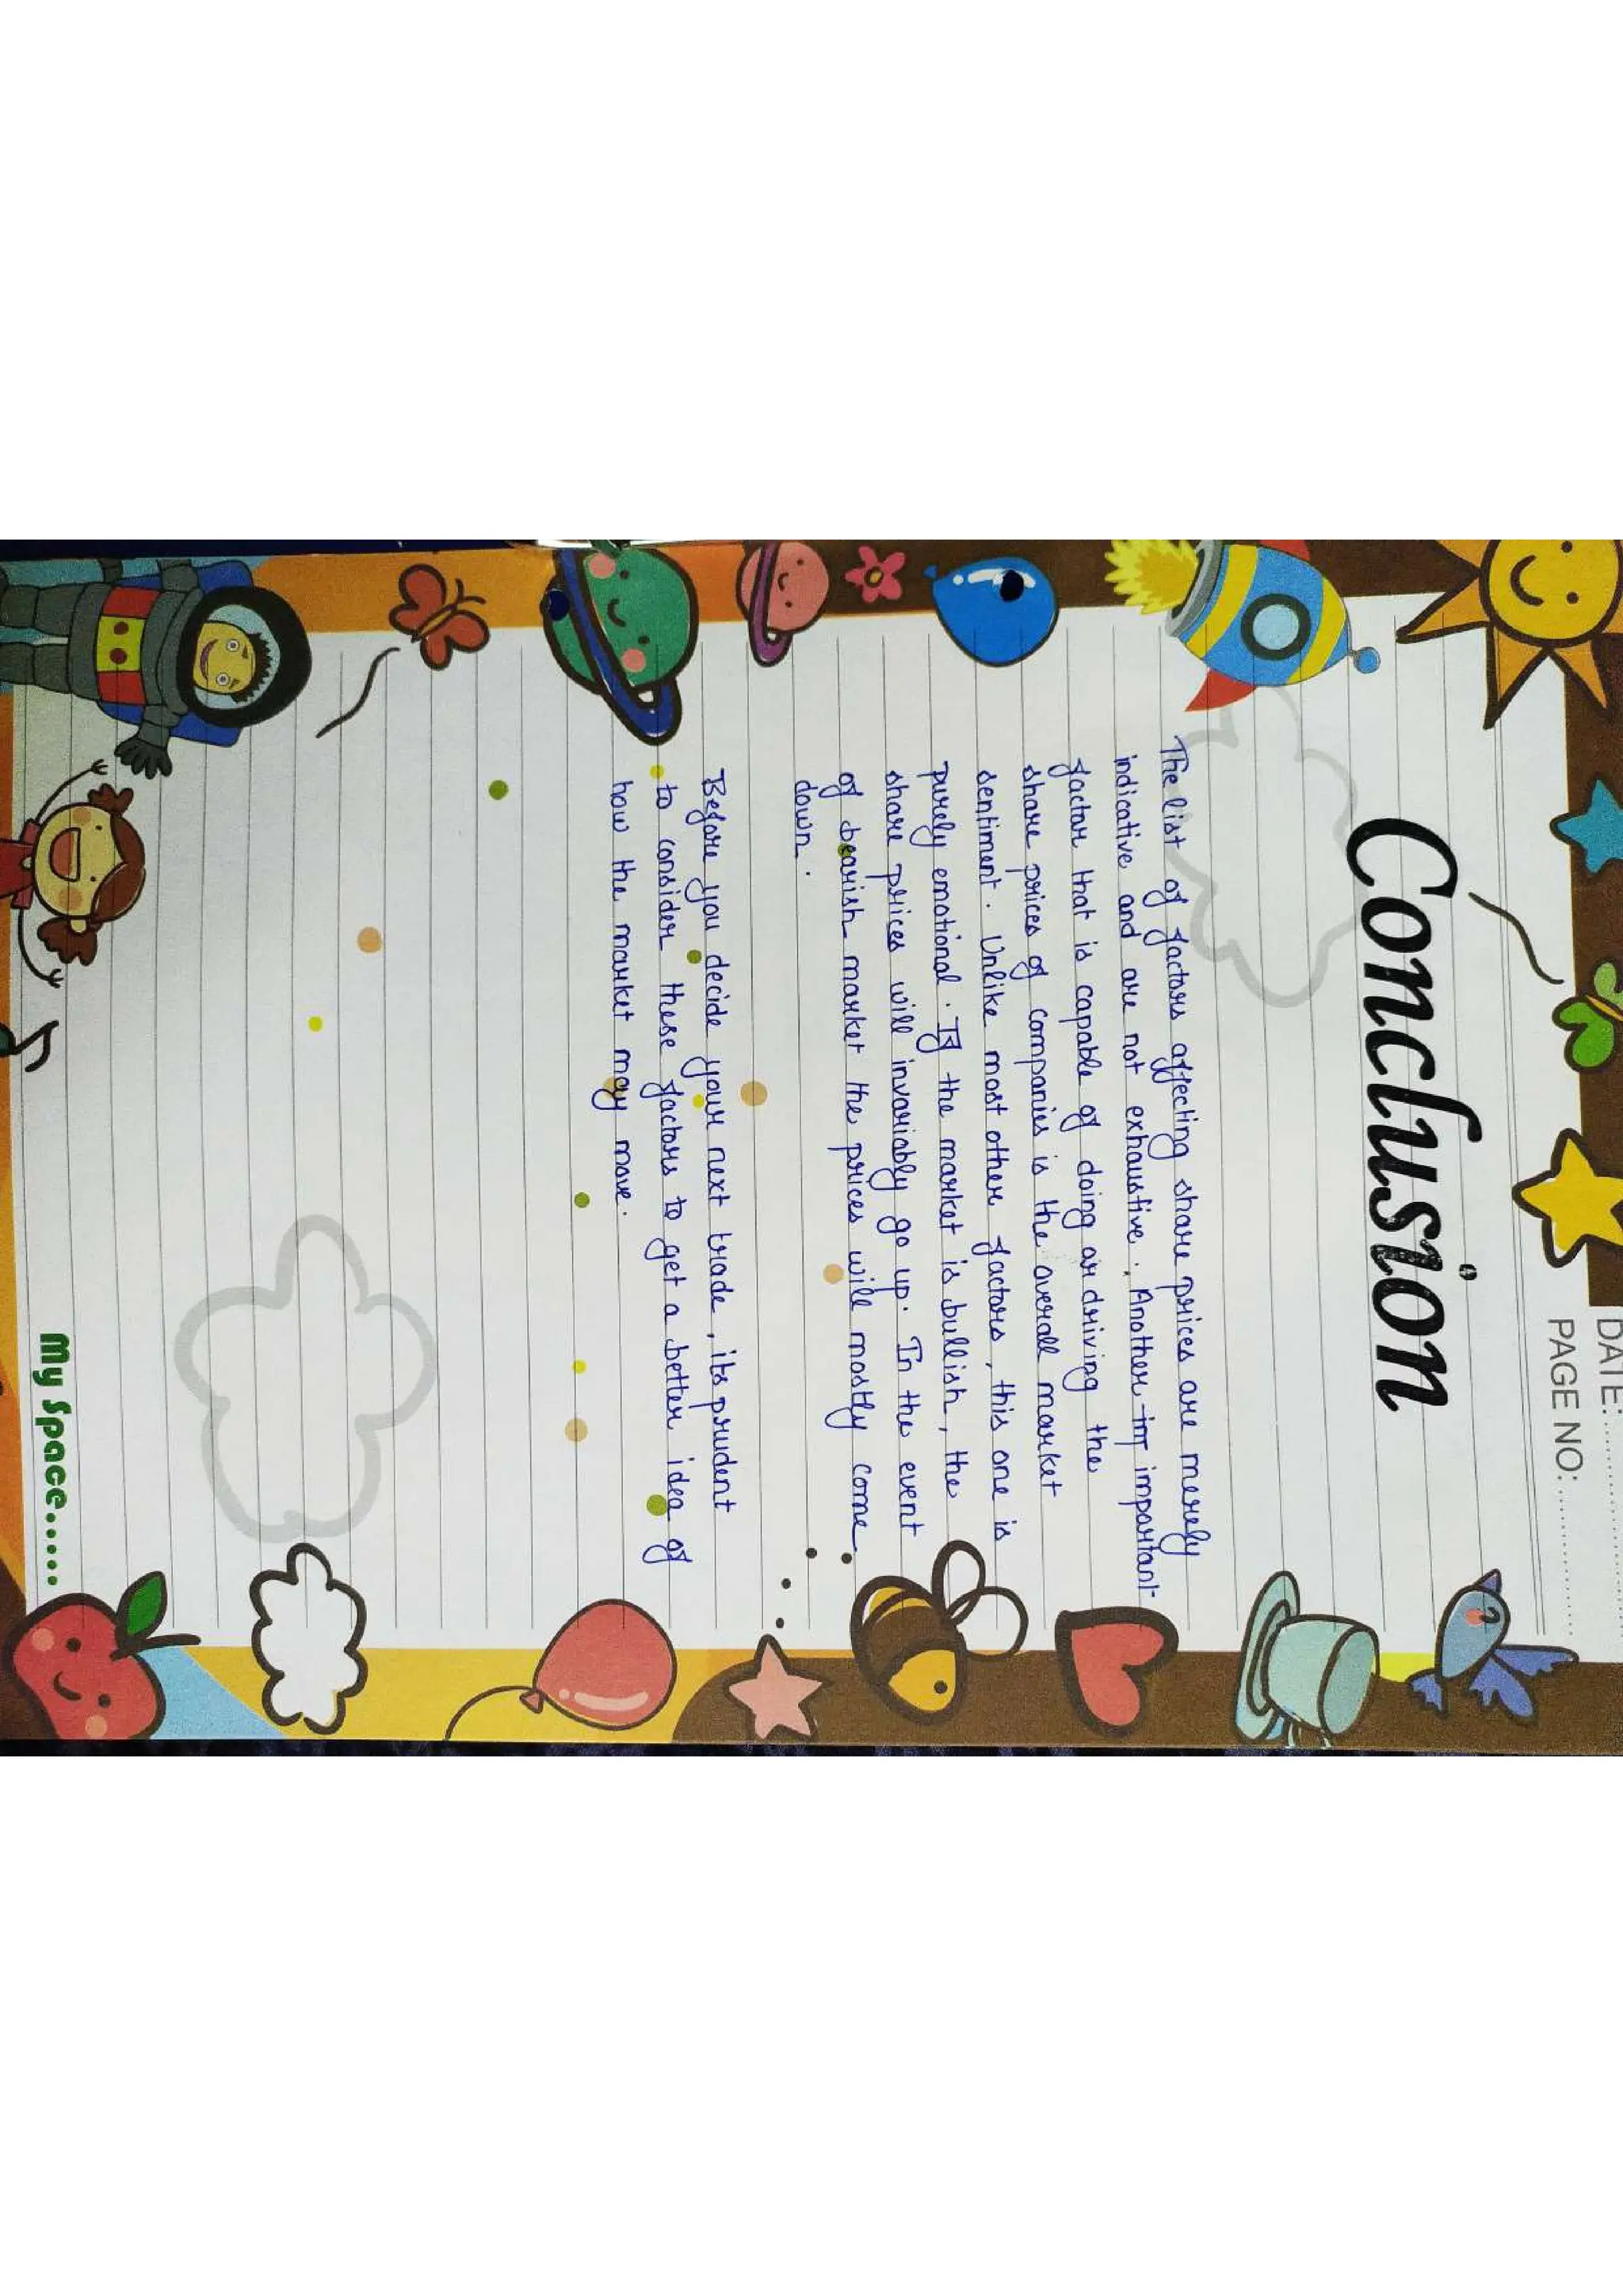 DATE:
PAGE NO:
Conclusion
The list of factors affecting share prices are merely
indicative and are not exhaustive. Another imp important
factor that is capable of doing or driving the
share prices of companies is the overall market
sentiment. Unlike most other factors, this one is
purely emotional. If the market is bullish, the
share prices will invariably go up. In the event
of bearish market the prices will mostly come
down.
Before you decide your next trade, its prudent
to consider these factors to get a better idea of
how the market may move.
My Space......